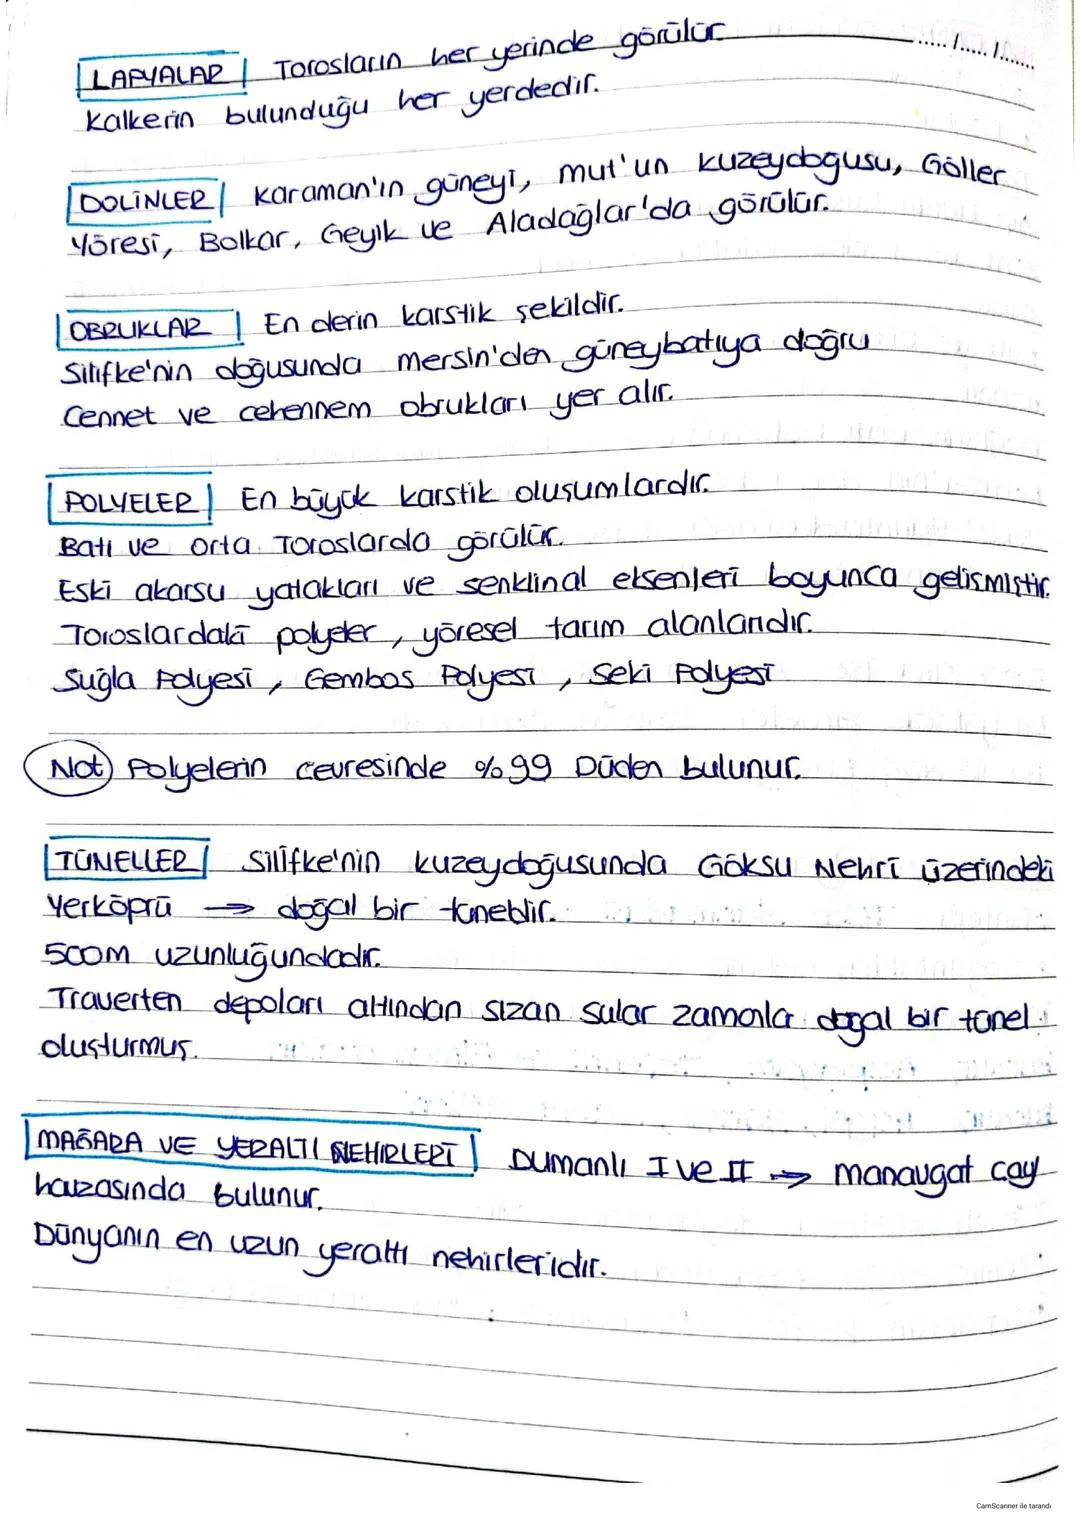 LAPYALAR Torosların her yerinde görülür. ...../...../......
Kalkerin bulunduğu her yerdedir.
DOLİNLER Karaman'ın güneyi, mut'un kuzeydoğusu, Göller
Yöresi, Bolkar, Geyik ve Aladağlar'da görülür.
OBRUKLAR En derin karstik şekildir.
Silifke'nin doğusunda mersin'den güneybatıya doğru
Cennet ve cehennem obrukları yer alır.
POLYELER En büyük karstik oluşumlardır.
Batı ve orta Toroslarda görülür.
Eski akarsu yatakları ve senklinal eksenleri boyunca gelişmiştir.
Toroslardaki polyeler, yöresel tarım alanlarıdır.
Suğla Polyesi, Gembos Polyesi, Seki Polyesi
Not Polyelerin çevresinde %99 Düden bulunur.
TÜNELLER Silifke'nin kuzeydoğusunda Göksu Nehri üzerindeki
Yerköprü → doğal bir tüneldir.
500m uzunluğundadır.
Traverten depoları altından sızan sular zamanla doğal bir tünel
oluşturmuş.
MAĞARA VE YERALTI NEHİRLERİ Dumanlı I ve II → manavgat çay
havzasında bulunur.
Dünyanın en uzun yeraltı nehirleridir.
CamScanner ile tarandı